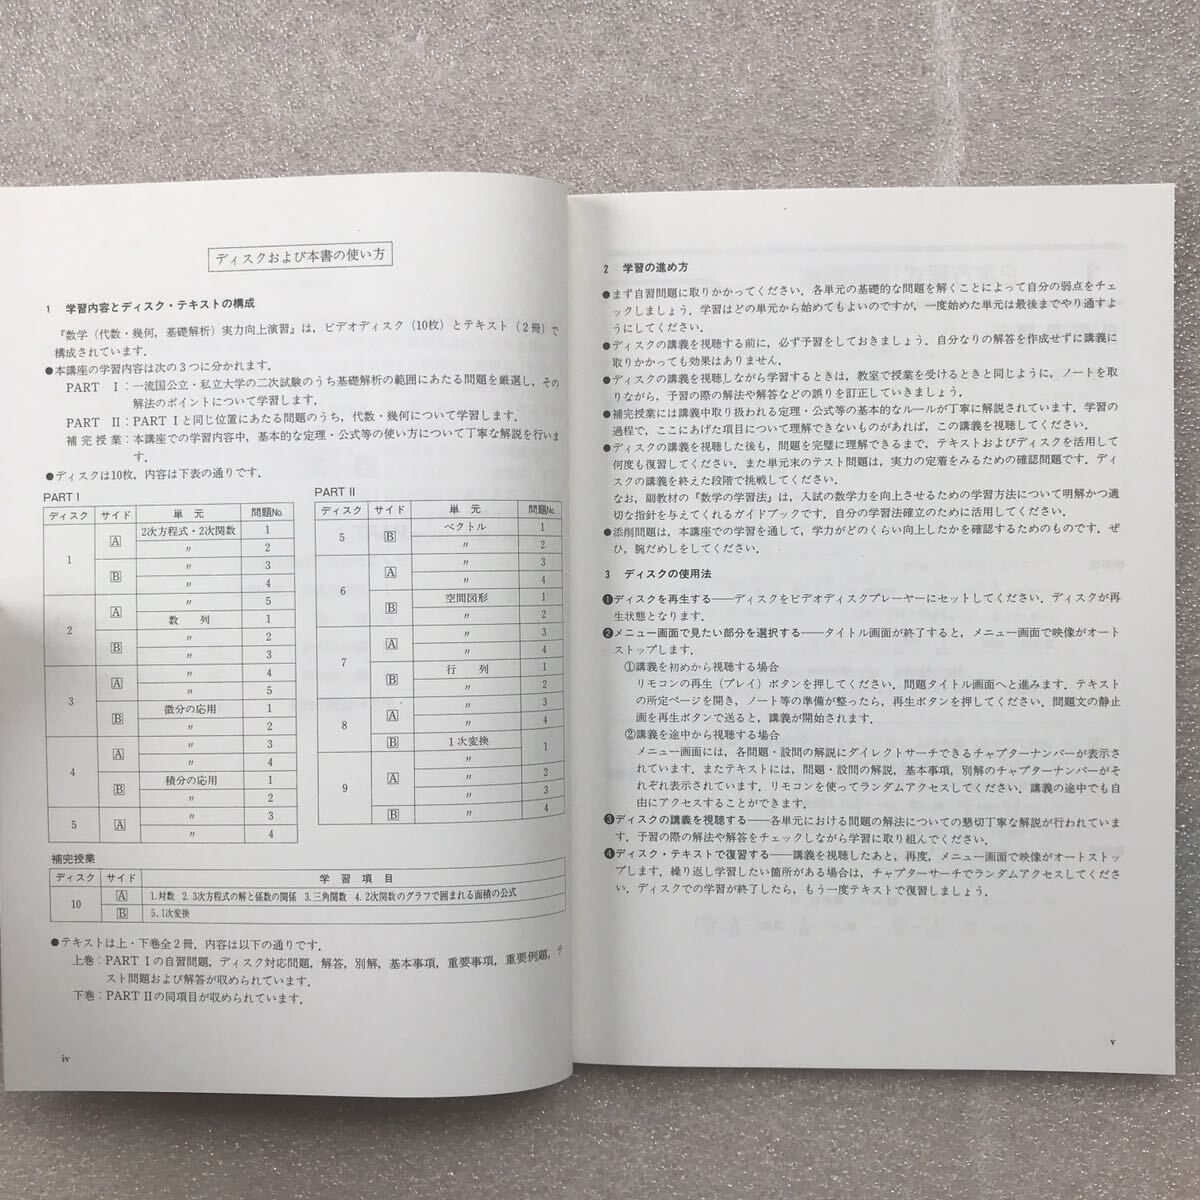 ディスクおよび本書の使い方
1 学習内容とディスク・テキストの構成
『数学(代数・幾何,基礎解析)実力向上演習』は,ビデオディスク(10枚)とテキスト(2冊)で
構成されています.
●本講座の学習内容は次の3つに分かれます.
PART Ⅰ:一流国公立・私立大学の二次試験のうち基礎解析の範囲にあたる問題を厳選し,その
解法のポイントについて学習します.
PART Ⅱ:PART Ⅰと同じ位置にあたる問題のうち,代数・幾何について学習します.
補完授業:本講座での学習内容中,基本的な定理・公式等の使い方について丁寧な解説を行いま
す.
●ディスクは10枚,内容は下表の通りです.
PART Ⅰ
ディスク サイド 単元 問題No.
1 A 2次方程式・2次関数 1
〃 2
B 〃 3
〃 4
2 A 〃 5
数列 1
B 〃 2
〃 3
3 A 〃 4
〃 5
B 微分の応用 1
〃 2
4 A 〃 3
〃 4
B 積分の応用 1
〃 2
5 A 〃 3
〃 4
PART Ⅱ
ディスク サイド 単元 問題No.
5 B ベクトル 1
〃 2
6 A 〃 3
〃 4
B 空間図形 1
〃 2
7 A 〃 3
〃 4
B 行列 1
〃 2
8 A 〃 3
〃 4
B 1次変換 1
9 A 〃
〃 2
〃 3
B 〃 4
補完授業
ディスク サイド 学習項目
10 A 1.対数 2.3次方程式の解と係数の関係 3.三角関数 4.2次関数のグラフで囲まれる面積の公式
B 5.1次変換
●テキストは上・下巻全2冊.内容は以下の通りです.
上巻:PART Ⅰの自習問題,ディスク対応問題,解答,別解,基本事項,重要事項,重要例題,テ
スト問題および解答が収められています.
下巻:PART Ⅱの同項目が収められています.
iv
2 学習の進め方
●まず自習問題に取りかかってください.各単元の基礎的な問題を解くことによって自分の弱点をチェ
ックしましょう.学習はどの単元から始めてもよいのですが,一度始めた単元は最後までやり通すよ
うにしてください.
●ディスクの講義を視聴する前に,必ず予習をしておきましょう.自分なりの解答を作成せずに講義に
取りかかっても効果はありません.
●ディスクの講義を視聴しながら学習するときは,教室で授業を受けるときと同じように,ノートを取
りながら,予習の際の解法や解答などの誤りを訂正していきましょう.
●補完授業には講義中取り扱われる定理・公式等の基本的なルールが丁寧に解説されています.学習の
過程で,ここにあげた項目について理解できないものがあれば,この講義を視聴してください.
●ディスクの講義を視聴した後も,問題を完璧に理解できるまで,テキストおよびディスクを活用して
何度も復習してください.また単元末のテスト問題は,実力の定着をみるための確認問題です.ディ
スクの講義を終えた段階で挑戦してください.
なお,副教材の『数学の学習法』は,入試の数学力を向上させるための学習方法について明解かつ適
切な指針を与えてくれるガイドブックです.自分の学習法確立のために活用してください.
●添削問題は,本講座での学習を通して,学力がどのくらい向上したかを確認するためのものです.ぜ
ひ,腕だめしをしてください.
3 ディスクの使用法
❶ディスクを再生する——ディスクをビデオディスクプレーヤーにセットしてください.ディスクが再
生状態となります.
❷メニュー画面で見たい部分を選択する——タイトル画面が終了すると,メニュー画面で映像がオート
ストップします.
①講義を初めから視聴する場合
リモコンの再生(プレイ)ボタンを押してください.問題タイトル画面へと進みます.テキスト
の所定ページを開き,ノート等の準備が整ったら,再生ボタンを押してください.問題文の静止
画を再生ボタンで送ると,講義が開始されます.
②講義を途中から視聴する場合
メニュー画面には,各問題・設問の解説にダイレクトサーチできるチャプターナンバーが表示さ
れています.またテキストには,問題・設問の解説,基本事項,別解のチャプターナンバーがそ
れぞれ表示されています.リモコンを使ってランダムアクセスしてください.講義の途中でも自
由にアクセスすることができます.
❸ディスクの講義を視聴する——各単元における問題の解法についての懇切丁寧な解説が行われていま
す.予習の際の解法や解答をチェックしながら学習に取り組んでください.
❹ディスク・テキストで復習する——講義を視聴したあと,再度,メニュー画面で映像がオートストッ
プします.繰り返し学習したい箇所がある場合は,チャプターサーチでランダムアクセスしてくださ
い.ディスクでの学習が終了したら,もう一度テキストで復習しましょう.
v